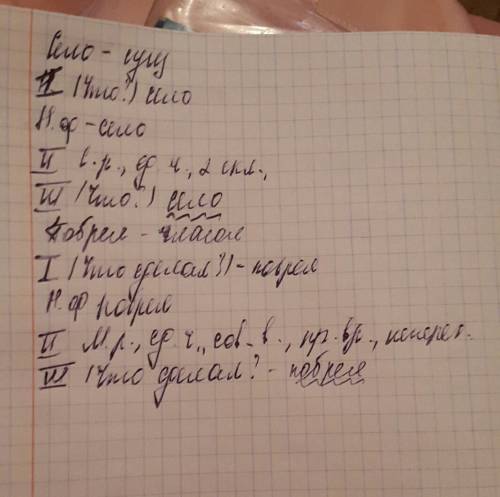 Село - сущ
I (Что?) село
Н.ф - село
II с.р., ед.ч., 2 скл.,
III (Что?) село
Побрел - глагол
I (Что сделал?) - побрел
Н.ф побрел
II М.р., ед.ч., сов.в., пр.вр.,
III (Что сделал? - побрел